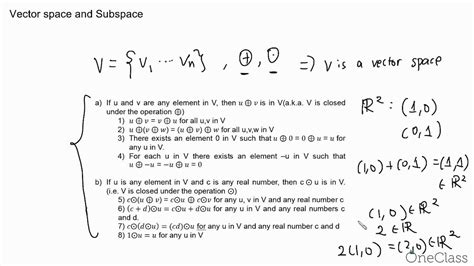 Vector space and Subspace
V = { v₁ ⋯ vₙ } , ⊕ , ⊙ ⇒ V is a vector space
a) If u and v are any element in V, then u ⊕ v is in V(a.k.a. V is closed
under the operation ⊕)
1) u ⊕ v = v ⊕ u for all u,v in V
2) u ⊕(v ⊕ w) = (u ⊕ v) ⊕ w for all u,v,w in V
3) There exists an element 0 in V such that u ⊕ 0 = 0 ⊕ u = u for
any u in V.
4) For each u in V there exists an element –u in V such that
u ⊕ -u = -u ⊕ u = 0
b) If u is any element in V and c is any real number, then c ⊙ u is in V.
(i.e. V is closed under the operation ⊙)
5) c⊙(u ⊕ v) = c⊙u ⊕ c⊙v for any u, v in V and any real number c
6) (c + d)⊙u = c⊙u + d⊙u for any u in V and any real numbers c
and d.
7) c⊙(d⊙u) = (cd)⊙u for any u in V and any real numbers c and d
8) 1⊙u = u for any u in V
ℝ² : (1,0)
(0,1)
(1,0) + (0,1) = (1,1)
∈ ℝ²
(1,0) ∈ ℝ²
2 ∈ ℝ
2(1,0) = (2,0) ∈ ℝ²
OneClass